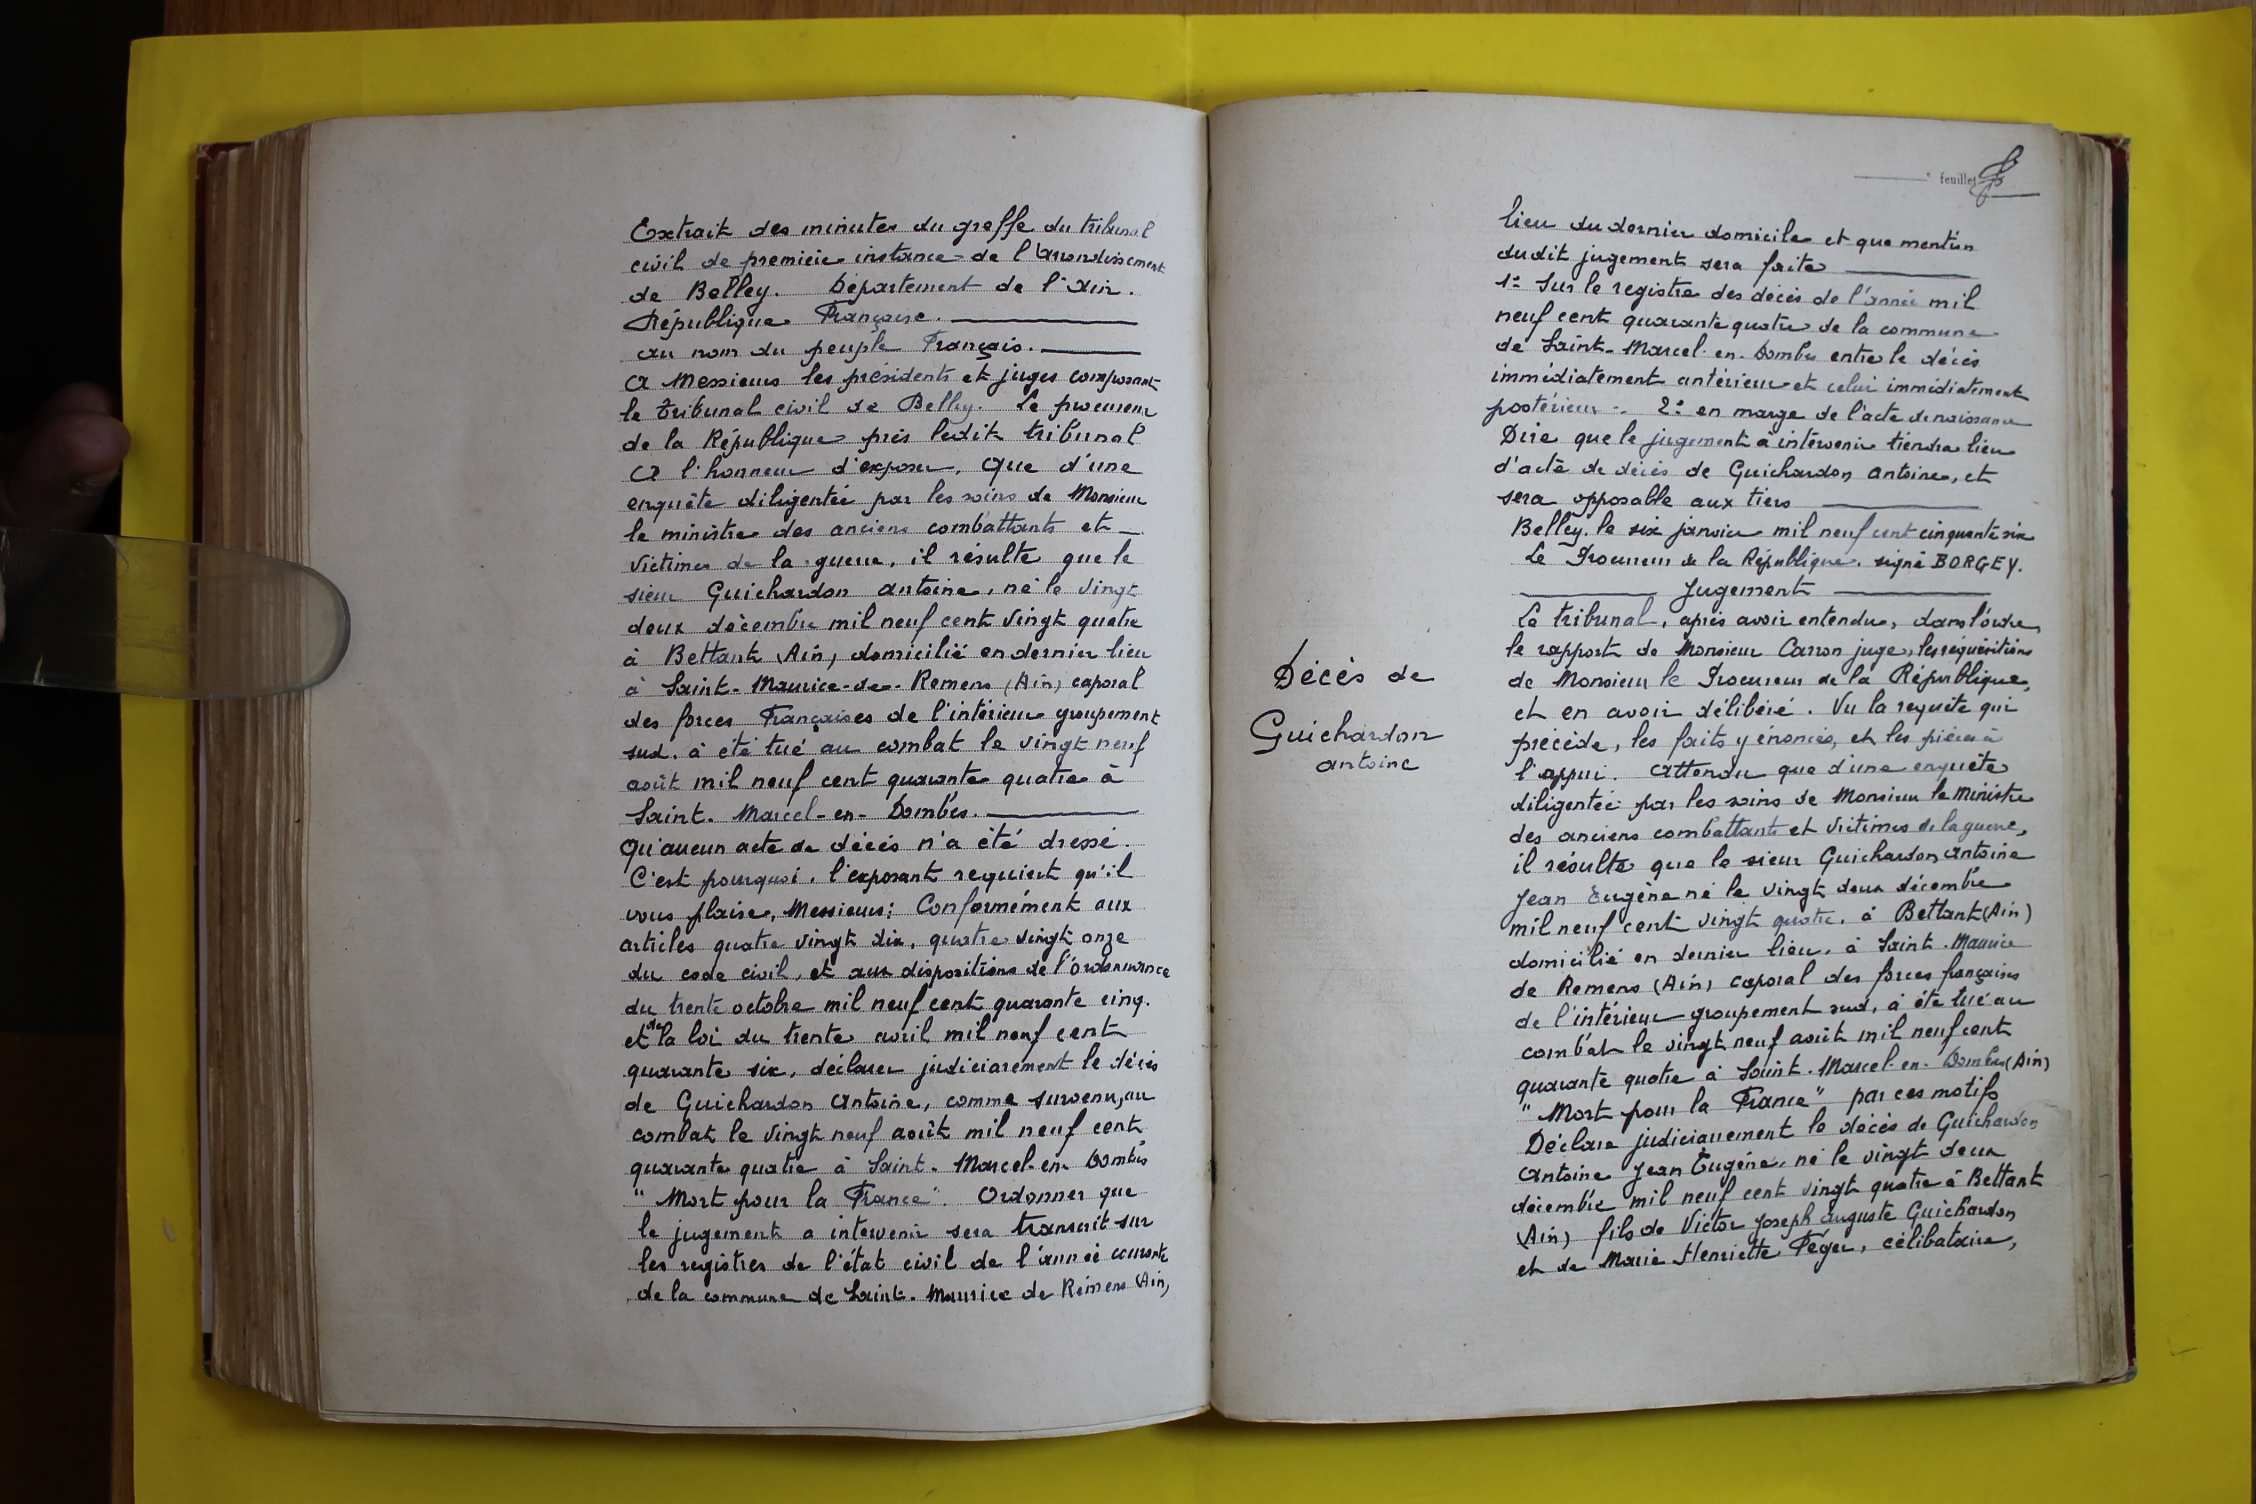 Extrait des minutes du greffe du tribunal
civil de première instance de l'Arrondissement
de Belley. Département de l'Ain.
République Française.
au nom du peuple Français.
A Messieurs les présidents et juges composant
le tribunal civil de Belley. Le procureur
de la République près ledit tribunal
A l'honneur d'exposer, Que d'une
enquête diligentée par les soins de Monsieur
le ministre des anciens combattants et
victimes de la guerre, il résulte que le
sieur Guichardon Antoine, né le vingt
deux décembre mil neuf cent vingt quatre
à Bettant (Ain) domicilié en dernier lieu
à Saint-Maurice-de-Remens (Ain) caporal
des forces Françaises de l'intérieur groupement
sud, à été tué au combat le vingt neuf
août mil neuf cent quarante quatre à
Saint-Marcel-en-Dombes.
qu'aucun acte de décès n'a été dressé.
C'est pourquoi, l'exposant requiert qu'il
vous plaise, Messieurs; Conformément aux
articles quatre vingt dix, quatre vingt onze
du code civil, et aux dispositions de l'ordonnance
du trente octobre mil neuf cent quarante cinq.
et de la loi du trente avril mil neuf cent
quarante six, déclarer judiciarement le décès
de Guichardon Antoine, comme survenu, au
combat le vingt neuf août mil neuf cent
quarante quatre à Saint-Marcel-en-Dombes
"Mort pour la France". Ordonner que
le jugement a intervenir sera transcrit sur
les registres de l'état civil de l'année courante
de la commune de Saint-Maurice de Rémens (Ain)
feuillet
lieu du dernier domicile et que mention
dudit jugement sera faite
1º Sur le registre des décès de l'année mil
neuf cent quarante quatre de la commune
de Saint-Marcel-en-Dombes entre le décès
immédiatement antérieur et celui immédiatement
postérieur. 2º en marge de l'acte de naissance
Dire que le jugement à intervenir tiendra lieu
d'acte de décès de Guichardon Antoine, et
sera opposable aux tiers
Belley, le six janvier mil neuf cent cinquante six
Le Procureur de la République. signé BORGEY.
Jugement
Le tribunal, après avoir entendu, dans l'ordre,
le rapport de Monsieur Carron juge, les réquisitions
de Monsieur le Procureur de la République,
et en avoir délibéré. Vu la requête qui
précède, les faits y énoncés, et les pièces à
l'appui. Attendu que d'une enquête
diligentée par les soins de Monsieur le Ministre
des anciens combattants et victimes de la guerre,
il résulte que le sieur Guichardon Antoine
Jean Eugène né le vingt deux décembre
mil neuf cent vingt quatre, à Bettant (Ain)
domicilié en dernier lieu, à Saint-Maurice
de Remens (Ain) caporal des forces françaises
de l'intérieur groupement sud, à été tué au
combat le vingt neuf août mil neuf cent
quarante quatre à Saint-Marcel-en-Dombes (Ain)
"Mort pour la France" par ces motifs
Déclare judiciairement le décès de Guichardon
Antoine Jean Eugène, né le vingt deux
décembre mil neuf cent vingt quatre à Bettant
(Ain) fils de Victor Joseph Auguste Guichardon
et de Marie Henriette Péger, célibataire,
Décès de
Guichardon
antoine